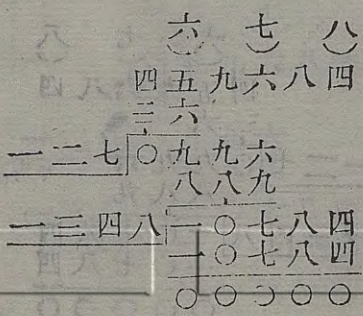 六 七 八
四五九六八四
三六
一二七 〇九九六
八八九
一三四八 一〇七八四
一〇七八四
〇〇〇〇〇